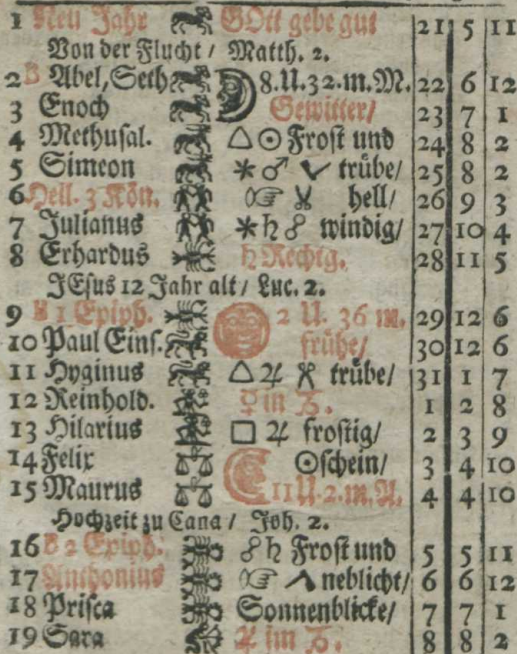 1 Neu Jahr GOtt gebe gut 21 5 11
Von der Flucht / Matth. 2.
2 B Abel, Seth 8. U. 32. m. M. 22 6 12
3 Enoch Gewitter/ 23 7 1
4 Methusal. △ ☉ Frost und 24 8 2
5 Simeon ✶ ♂ trübe/ 25 8 2
6 Heil. 3 Kön. hell/ 26 9 3
7 Julianus ✶ ♄ ☍ windig/ 27 10 4
8 Erhardus ♄ Rechtg. 28 11 5
JEsus 12 Jahr alt / Luc. 2.
9 B 1 Epiph. 2 U. 36 m. 29 12 6
10 Paul Eins. frühe/ 30 12 6
11 Hyginus △ ♃ trübe/ 31 1 7
12 Reinhold. ☿ in ♑. 1 2 8
13 Hilarius □ ♃ frostig/ 2 3 9
14 Felix ☉schein/ 3 4 10
15 Maurus 11 U. 2. m. A. 4 4 10
Hochzeit zu Cana / Joh. 2.
16 B 2 Epiph. ☍ ♄ Frost und 5 5 11
17 Anthonius neblicht/ 6 6 12
18 Prisca Sonnenblicke/ 7 7 1
19 Sara im ♑. 8 8 2